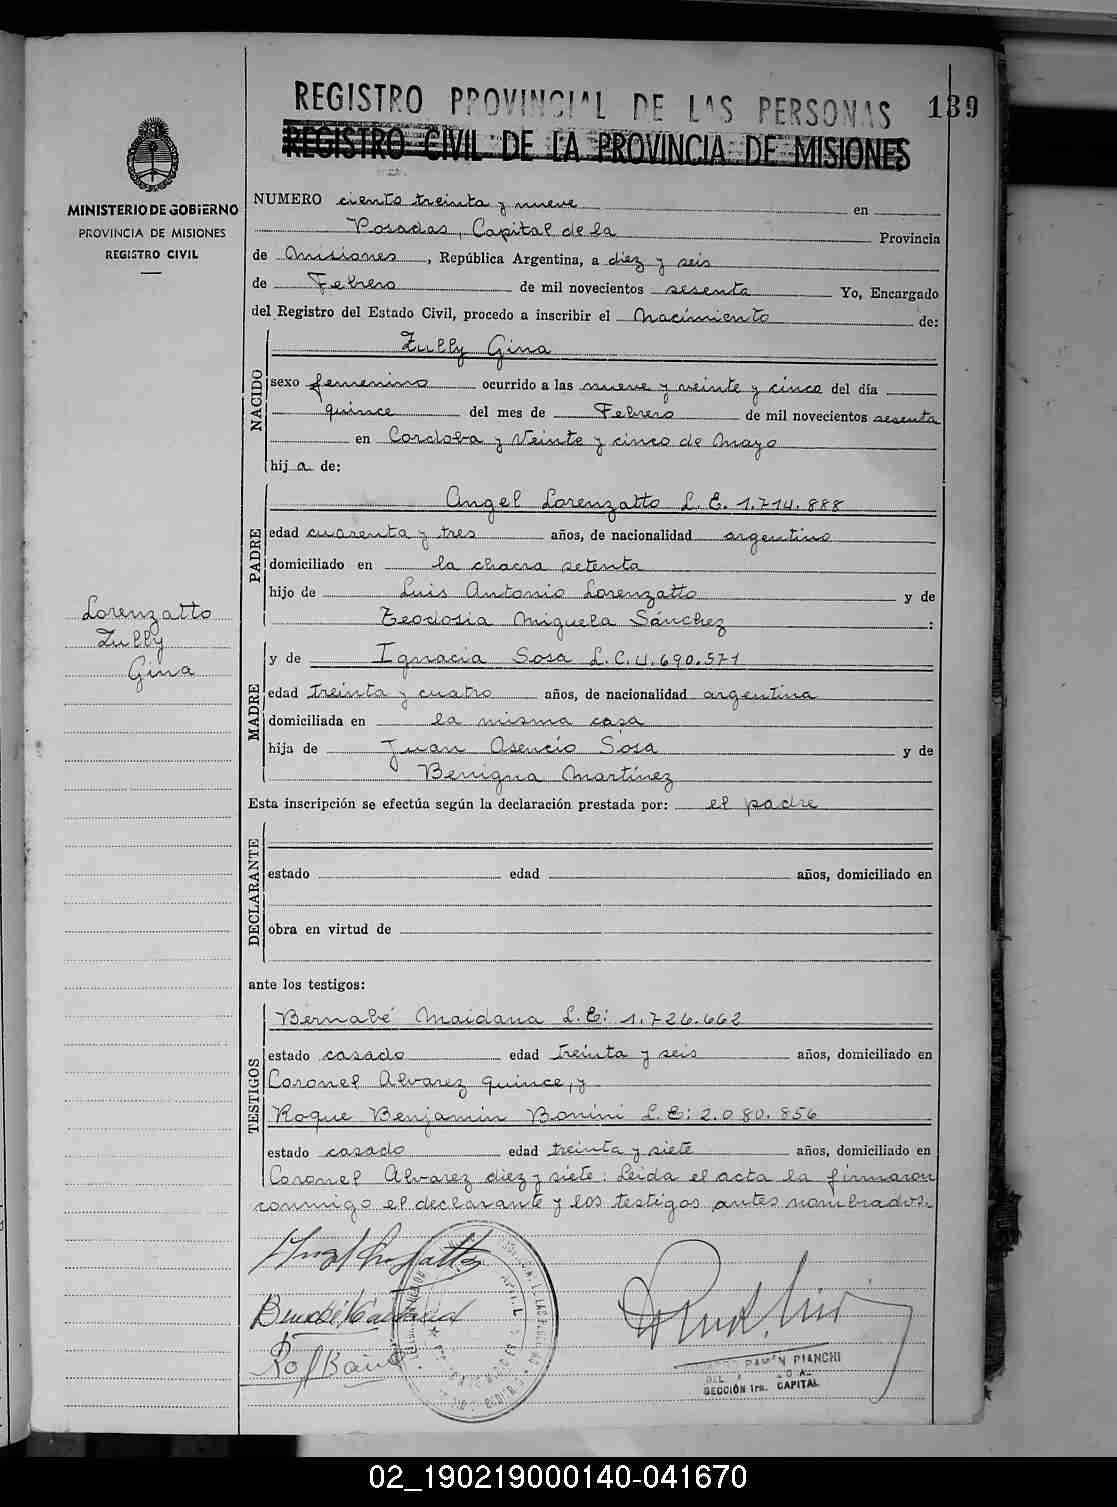 REGISTRO PROVINCIAL DE LAS PERSONAS
139
REGISTRO CIVIL DE LA PROVINCIA DE MISIONES
MINISTERIO DE GOBIERNO
PROVINCIA DE MISIONES
REGISTRO CIVIL
NUMERO ciento treinta y nueve en
Posadas, Capital de la Provincia
de Misiones, República Argentina, a diez y seis
de Febrero de mil novecientos sesenta Yo, Encargado
del Registro del Estado Civil, procedo a inscribir el Nacimiento de:
NACIDO
Zully Gina
sexo femenino ocurrido a las nueve y veinte y cinco del día
quince del mes de Febrero de mil novecientos sesenta
en Cordoba y Veinte y cinco de Mayo
hij a de:
PADRE
Angel Lorenzatto L.E. 1.714.888
edad cuarenta y tres años, de nacionalidad argentino
domiciliado en la chacra setenta
hijo de Luis Antonio Lorenzatto y de
Teodosia Miguela Sánchez :
Lorenzatto
Zully
Gina
MADRE
y de Ignacia Sosa L.C. 4.690.571
edad treinta y cuatro años, de nacionalidad argentina
domiciliada en la misma casa
hija de Juan Asencio Sosa y de
Benigna Martínez
Esta inscripción se efectúa según la declaración prestada por: el padre
DECLARANTE
estado edad años, domiciliado en
obra en virtud de
ante los testigos:
TESTIGOS
Bernabé Maidana L.E: 1.726.662
estado casado edad treinta y seis años, domiciliado en
Coronel Alvarez quince, y
Roque Benjamin Bonini L.E: 2.080.856
estado casado edad treinta y siete años, domiciliado en
Coronel Alvarez diez y siete: Leida el acta la firmaron
conmigo el declarante y los testigos antes nombrados.
RAMÓN PIANCHI
SECCIÓN 1ra. CAPITAL
02_190219000140-041670